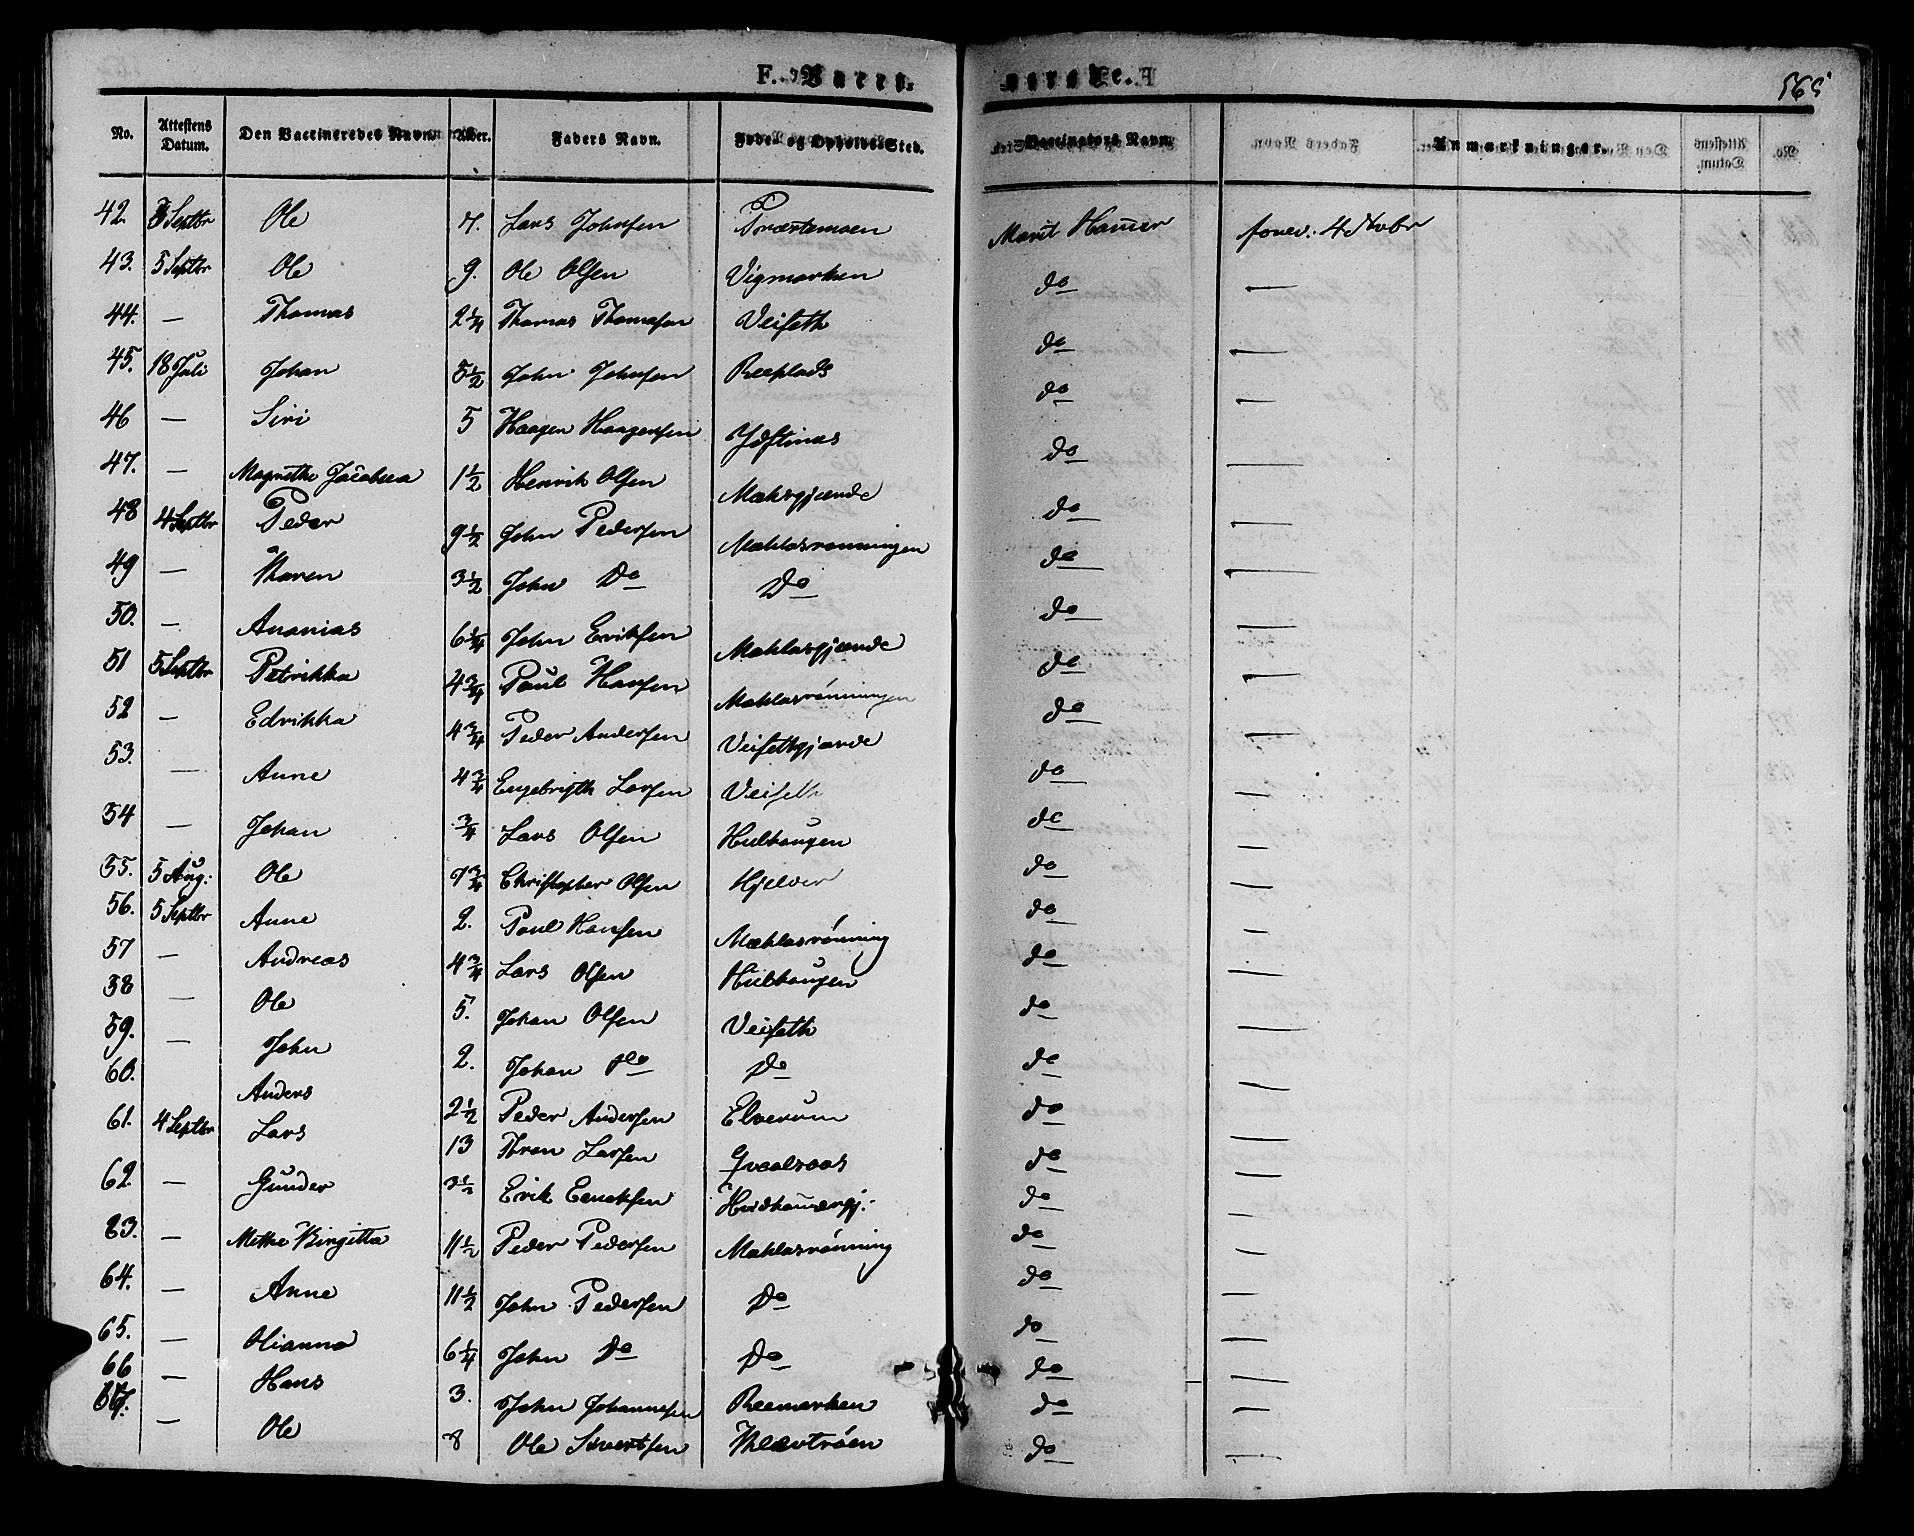 F. Vacci- nerede.
565
No. Attestens Datum. Den Vaccineredes Navn. Alder. Faders Navn. Føde- og Opholds-Sted. Vaccinators Navn. Anmærkninger.
42. 3 Septbr Ole 7. Lars Johnsen Præstemoen Marit Hammer
43. 5 Septbr Ole 9. Ole Olsen Vigmarken do —
44. — Thomas 2 1/4 Thomas Thomasen Veiseth do —
45. 18 Juli Johan 5 1/2 John Johnsen Reeplads do —
46 — Siri 5 Haagen Haagensen do —
47. — Magrethe Jacobea 1 1/2 Henrik Olsen Mæhlesgjærde do —
48 4 Septbr Peder 9 1/2 John Pedersen Mæhlasrønningen do —
49 — Maren 3 1/2 John Do Do do —
50. — Ananias 6 1/4 John Eriksen Mæhlasgjærde do —
51 5 Septbr Petrikka 4 3/4 Paul Hansen Mæhlasrønningen do —
52 — Edrikka 4 3/4 Peder Andersen Veisethgjærde do —
53. — Anne 4 3/4 Engebrigth Larsen Veiseth do —
54 — Johan 3/4 Lars Olsen Hulhaugen do —
55. 5 Aug: Ole 9 3/4 Christopher Olsen Hjelver do —
56. 5 Septbr Anne 2. Paul Hansen Mæhlasrønning do —
57 — Andreas 4 3/4 Lars Olsen Hulhaugen do —
58 — Ole 5. Johan Olsen Veiseth do —
59. — John 2. Johan Do Do do —
60. Anders 2 1/2 Peder Andersen Elverum do —
61. 4 Septbr Lars 13 Thron Larsen Qvaalsaas do —
62 — Gunder 3 1/2 Erik Hvidhammergj: do —
63. — Mette Birgitta 11 1/2 Peder Pedersen Mæhlasrønning do —
64. — Anne 11 1/2 John Pedersen Do do —
65. — Olianna 6 1/4 John Do Do do —
66 — Hans 3. John Johannesen Reemarken do —
67. — Ole 8 Ole Sivertsen Klevtrøen do —